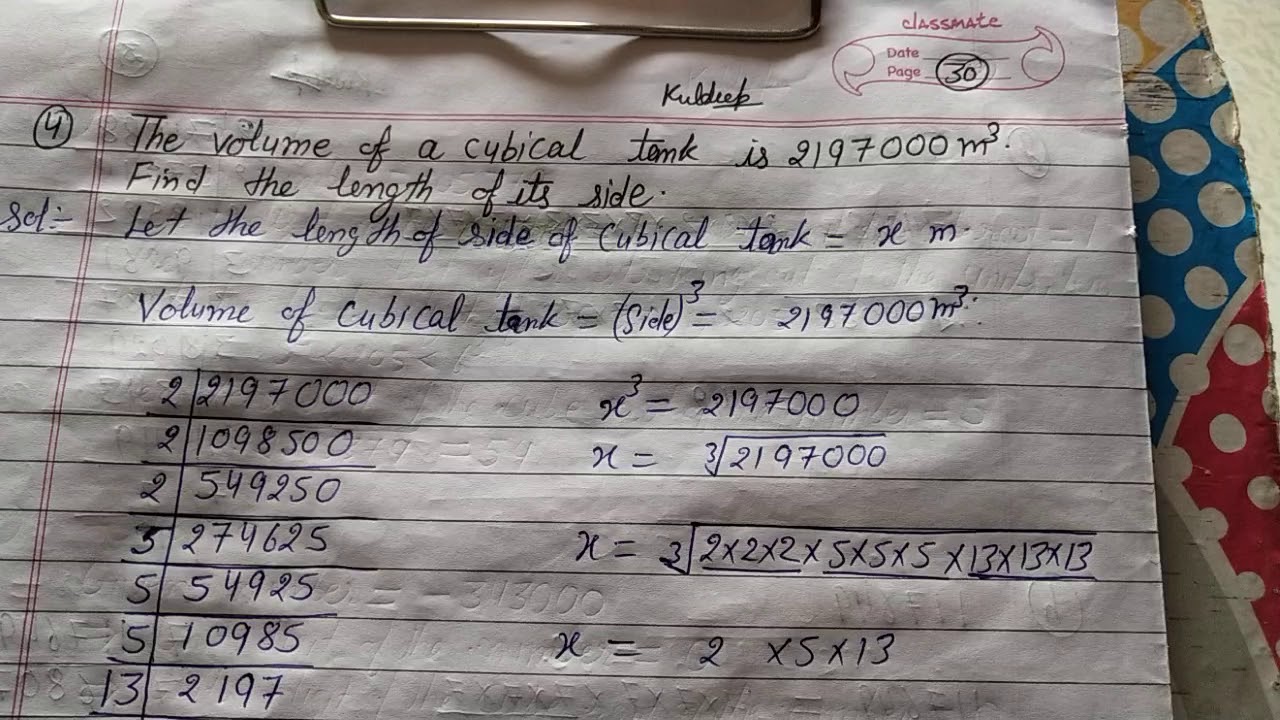 classmate
Date
Page 30
Kuldeep
4 The volume of a cubical tank is 2197000 m³.
Find the length of its side.
Sol:- Let the length of side of cubical tank = x m.
Volume of cubical tank = (Side)³ = 2197000 m³.
2 | 2197000
2 | 1098500
2 | 549250
5 | 274625
5 | 54925
5 | 10985
13 | 2197
x³ = 2197000
x = ∛2197000
x = ∛2×2×2×5×5×5×13×13×13
x = 2 ×5×13